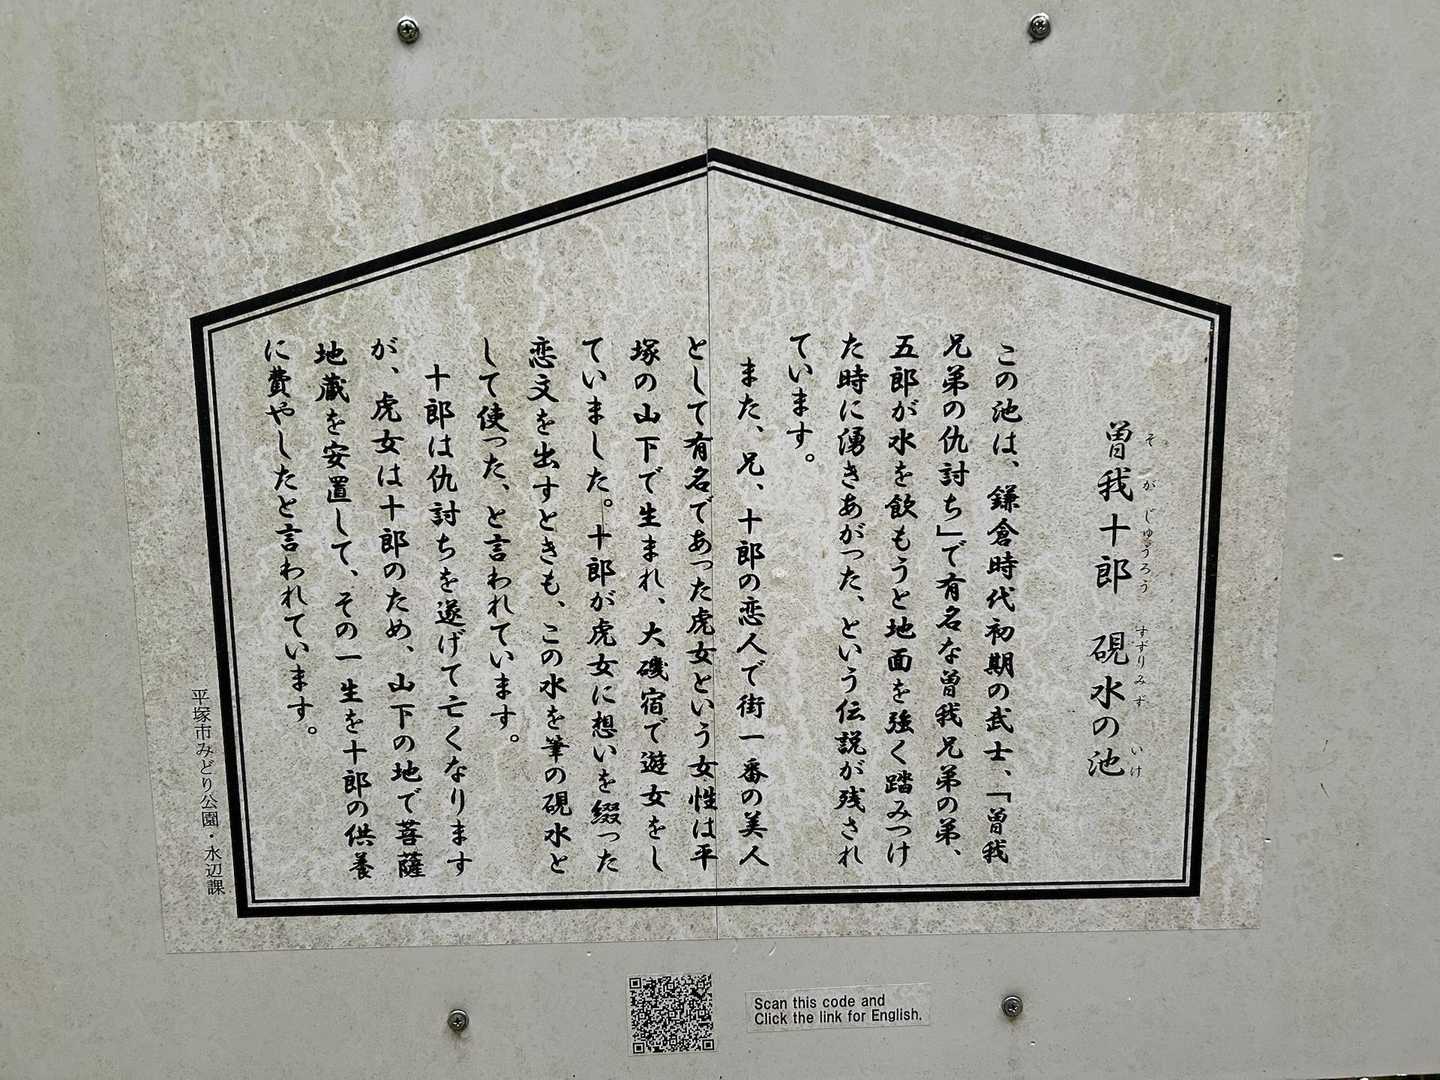 曽我十郎 硯水の池
そ が じゅうろう すずりみず いけ
この池は、鎌倉時代初期の武士、「曽我
兄弟の仇討ち」で有名な曽我兄弟の弟、
五郎が水を飲もうと地面を強く踏みつけ
た時に湧きあがった、という伝説が残され
ています。
また、兄、十郎の恋人で街一番の美人
として有名であった虎女という女性は平
塚の山下で生まれ、大磯宿で遊女をし
ていました。十郎が虎女に想いを綴った
恋文を出すときも、この水を筆の硯水と
して使った、と言われています。
十郎は仇討ちを遂げて亡くなります
が、虎女は十郎のため、山下の地で菩薩
地蔵を安置して、その一生を十郎の供養
に費やしたと言われています。
平塚市みどり公園・水辺課
Scan this code and
Click the link for English.